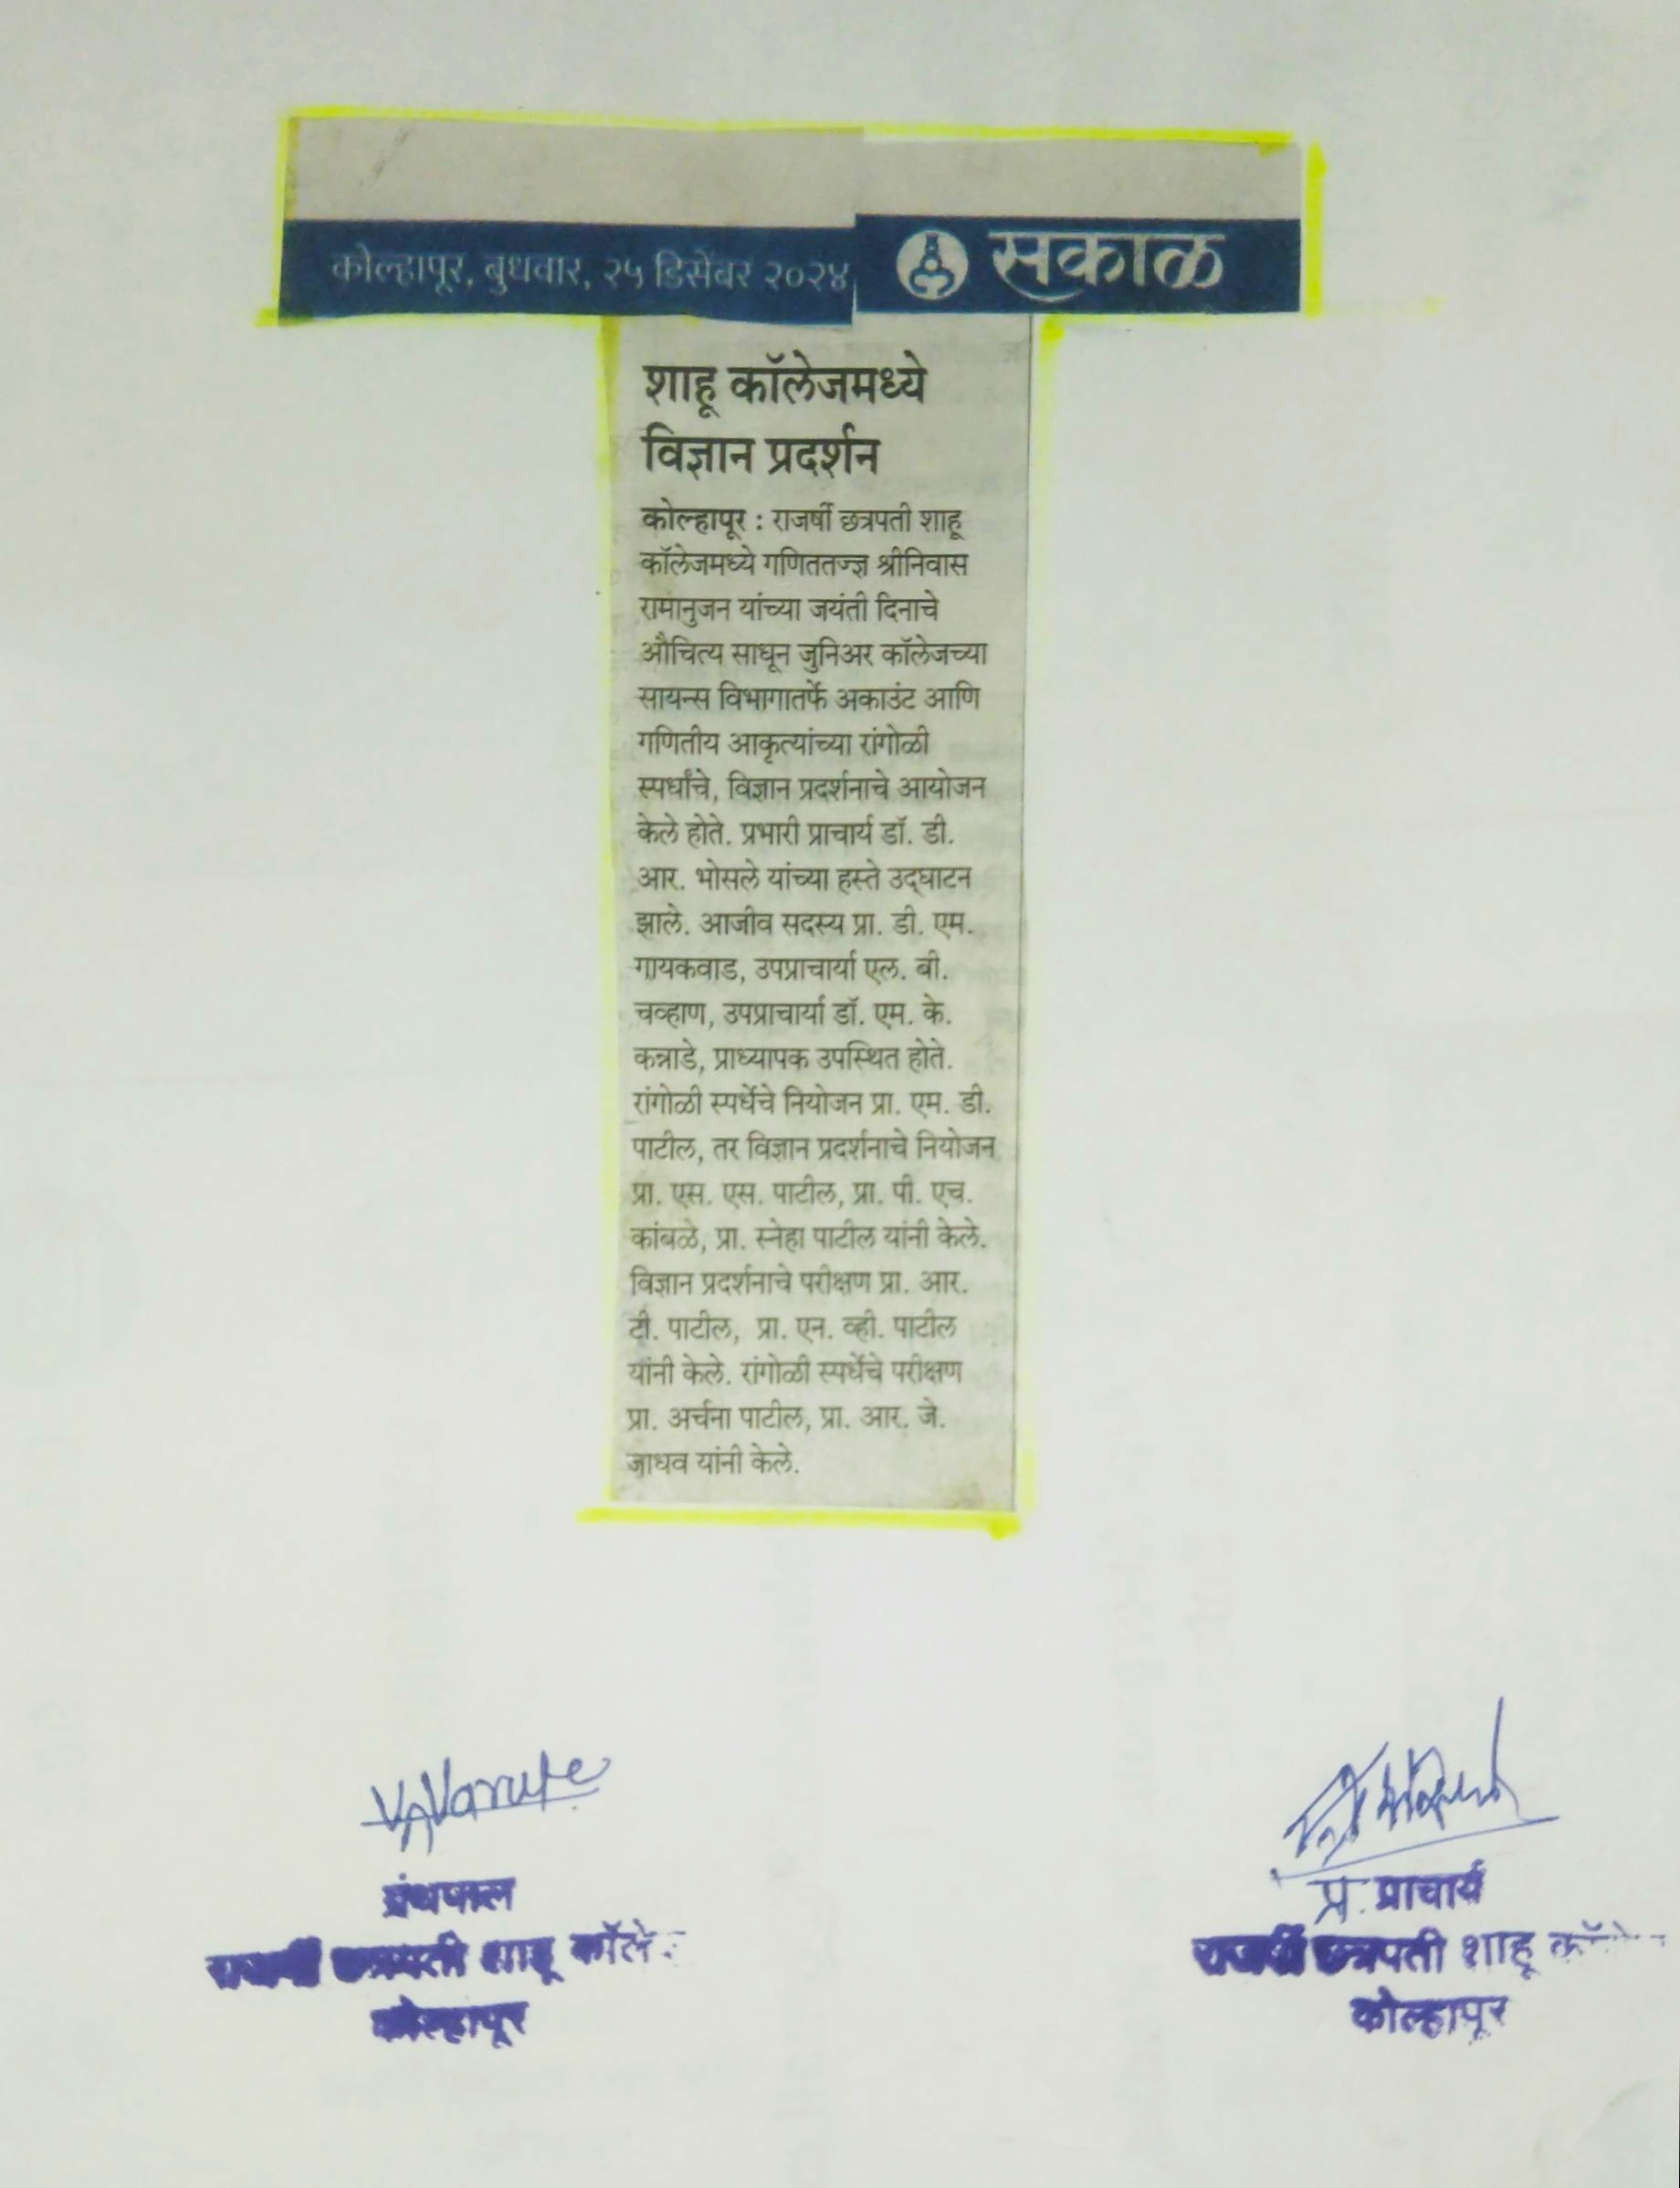 कोल्हापूर, बुधवार, २५ डिसेंबर २०२४
सकाळ
शाहू कॉलेजमध्ये
विज्ञान प्रदर्शन
कोल्हापूर : राजर्षी छत्रपती शाहू
कॉलेजमध्ये गणिततज्ज्ञ श्रीनिवास
रामानुजन यांच्या जयंती दिनाचे
औचित्य साधून जुनिअर कॉलेजच्या
सायन्स विभागातर्फे अकाउंट आणि
गणितीय आकृत्यांच्या रांगोळी
स्पर्धांचे, विज्ञान प्रदर्शनाचे आयोजन
केले होते. प्रभारी प्राचार्य डॉ. डी.
आर. भोसले यांच्या हस्ते उद्‌घाटन
झाले. आजीव सदस्य प्रा. डी. एम.
गायकवाड, उपप्राचार्या एल. बी.
चव्हाण, उपप्राचार्या डॉ. एम. के.
कन्नाडे, प्राध्यापक उपस्थित होते.
रांगोळी स्पर्धेचे नियोजन प्रा. एम. डी.
पाटील, तर विज्ञान प्रदर्शनाचे नियोजन
प्रा. एस. एस. पाटील, प्रा. पी. एच.
कांबळे, प्रा. स्नेहा पाटील यांनी केले.
विज्ञान प्रदर्शनाचे परीक्षण प्रा. आर.
टी. पाटील, प्रा. एन. व्ही. पाटील
यांनी केले. रांगोळी स्पर्धेचे परीक्षण
प्रा. अर्चना पाटील, प्रा. आर. जे.
जाधव यांनी केले.
ग्रंथपाल
राजर्षी छत्रपती शाहू कॉलेज
कोल्हापूर
प्र. प्राचार्य
राजर्षी छत्रपती शाहू
कोल्हापूर